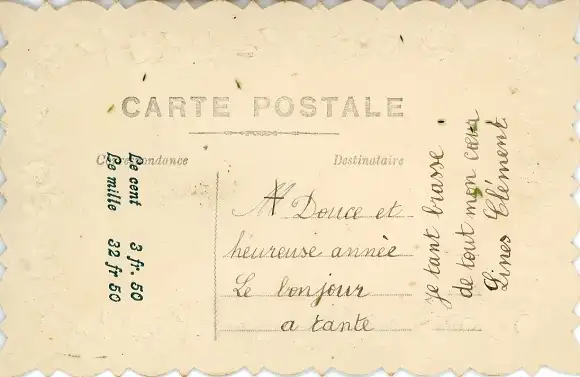 CARTE POSTALE
Correspondance
Destinataire
Le cent 3 fr. 50
Le mille 32 fr 50
Douce et
heureuse année
Le bonjour
a tante
Je tant brasse
de tout mon cœur
Lines Clément